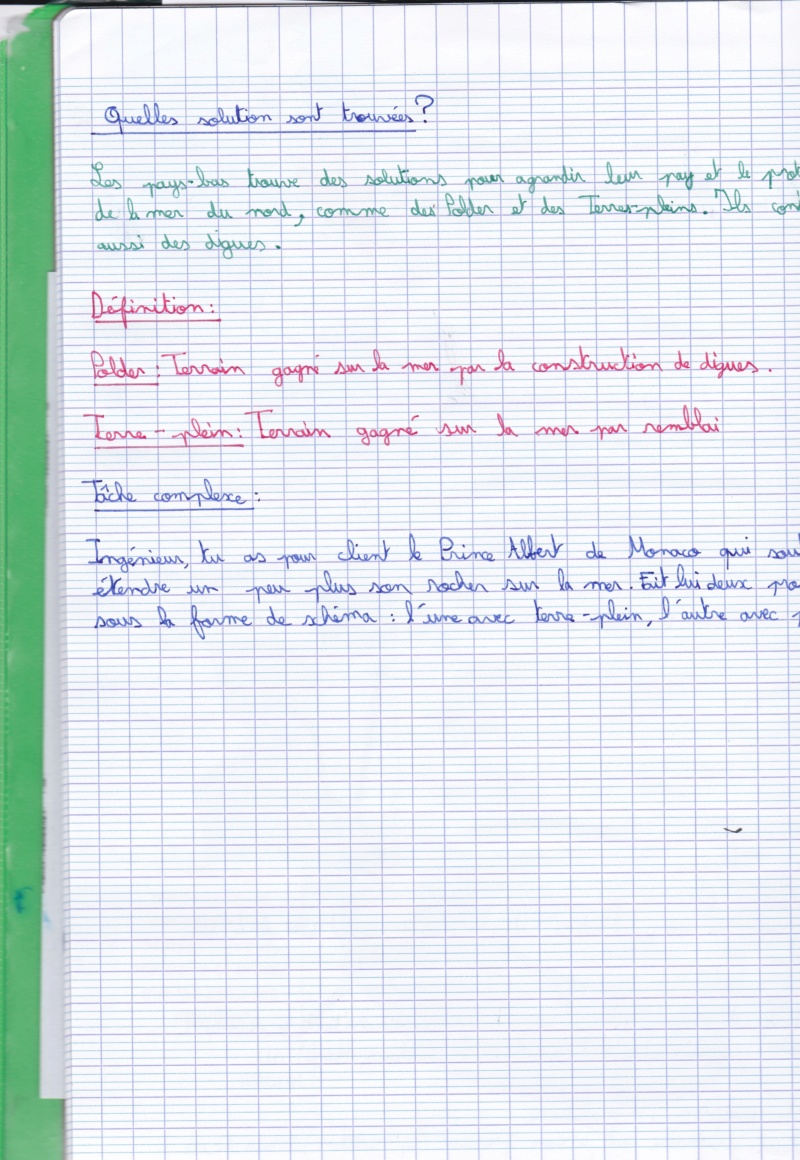 Quelles solution sont trouvées ?
Les pays-bas trouve des solutions pour agrandir leur pay et le prot
de la mer du nord, comme des Polder et des Terres-pleins. Ils con
aussi des digues.
Définition :
Polder : Terrain gagné sur la mer par la construction de digues.
Terre-plein : Terrain gagné sur la mer par remblai
Tâche complexe :
Ingénieur, tu as pour client le Prince Albert de Monaco qui sou
étendre un peu plus son rocher sur la mer. Fait lui deux pro
sous la forme de schéma : l'une avec terre-plein, l'autre avec